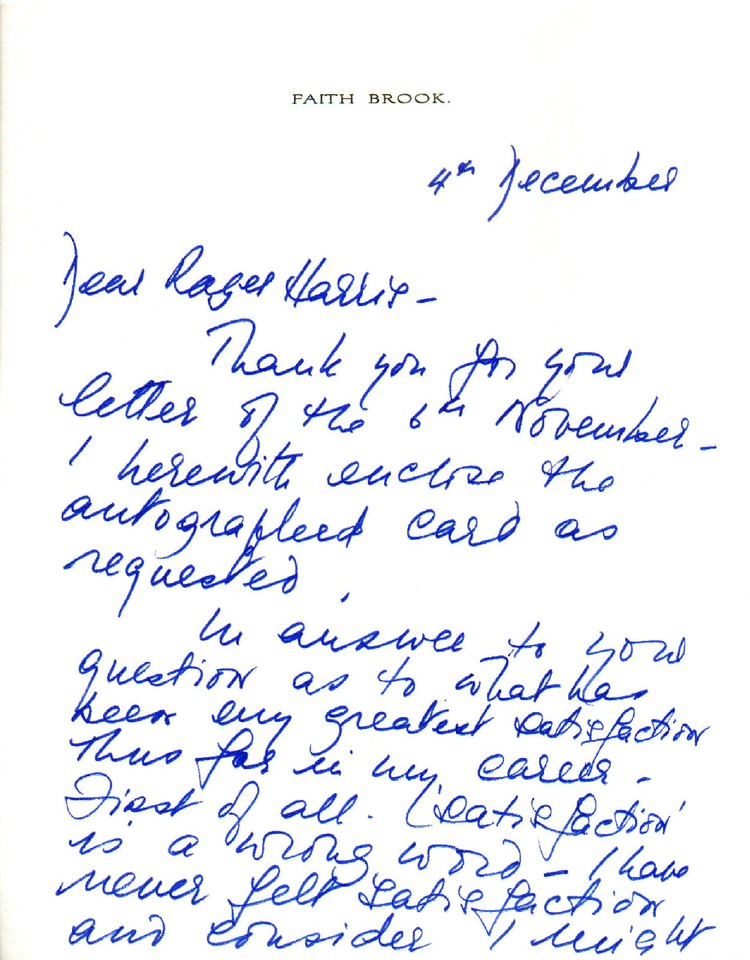 FAITH BROOK.
4th December
Dear Roger Harris –
Thank you for your
letter of the 6th November –
I herewith enclose the
autographed card as
requested.
In answer to your
question as to what has
been my greatest satisfaction
thus far in my career –
First of all. 'Satisfaction'
is a wrong word – I have
never felt satisfaction
and consider I might